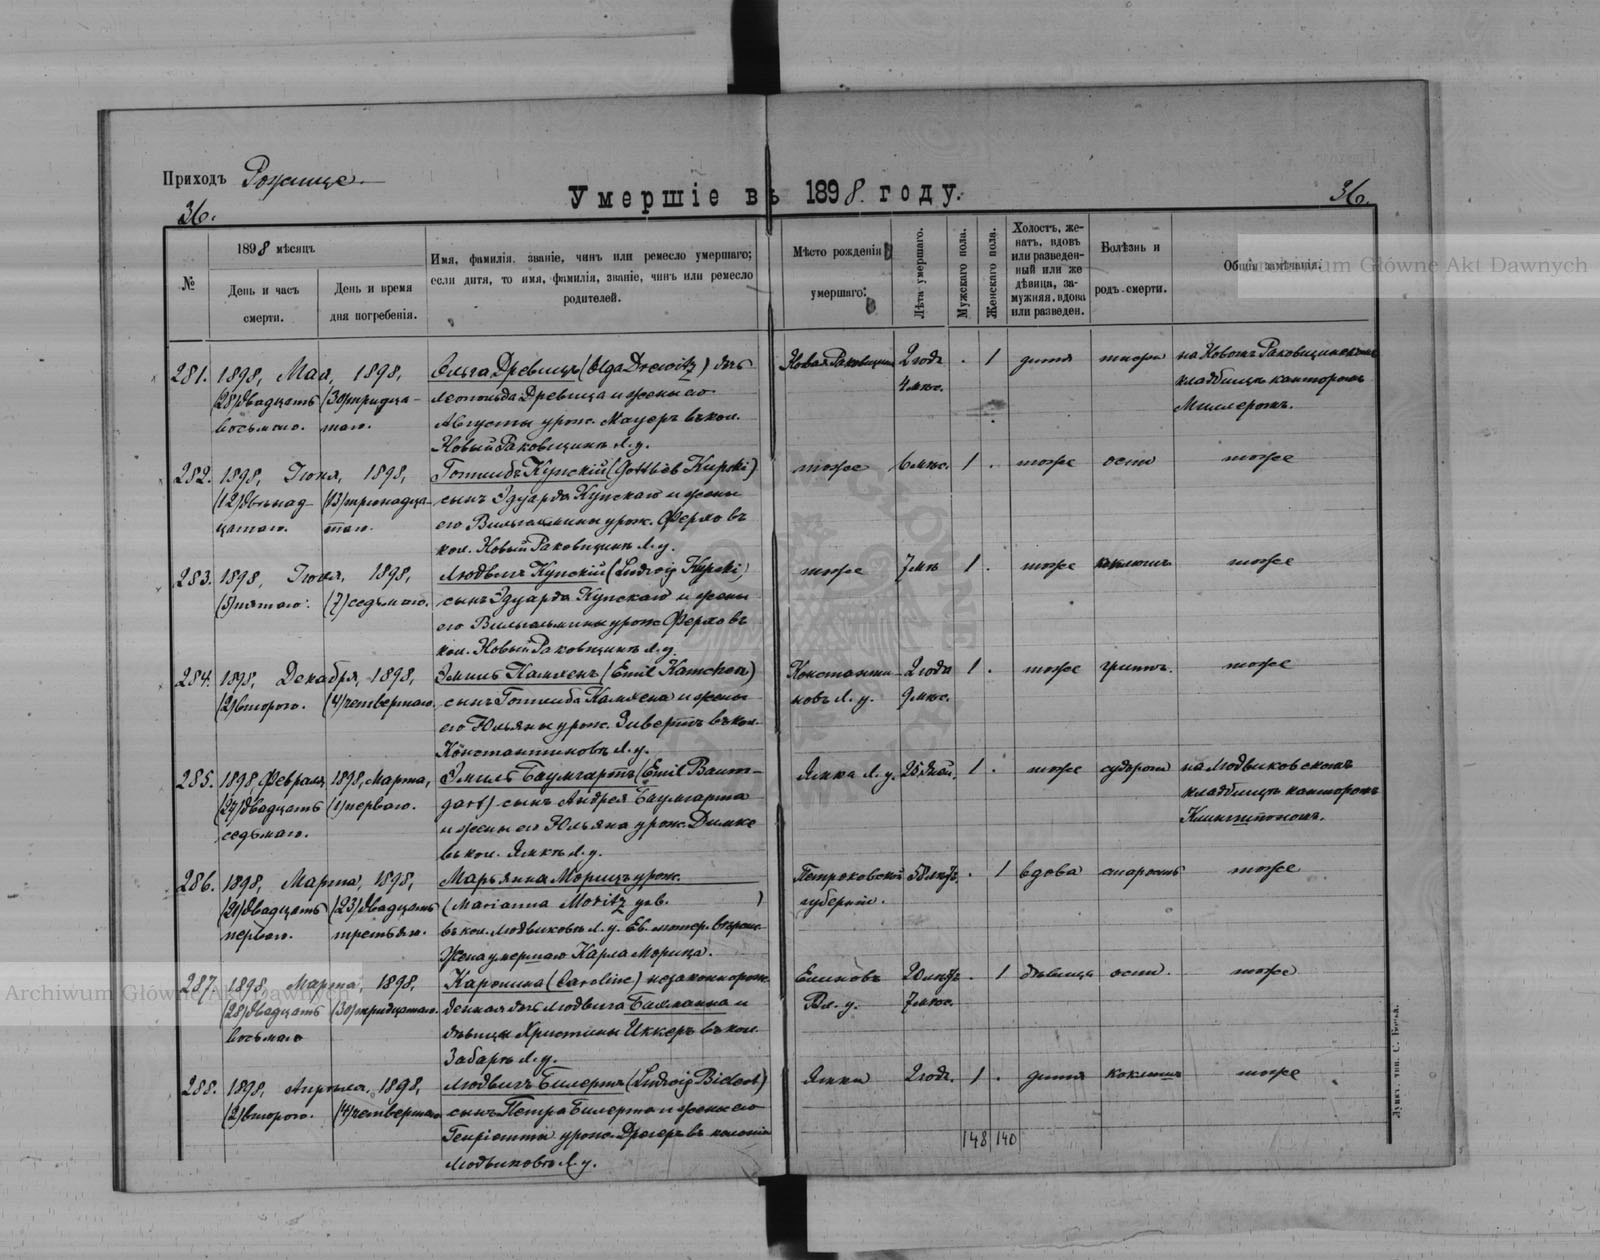 Приходъ Рожище
Умершіе въ 1898 году.
36.
36.
№
1898 мѣсяцъ
День и часъ смерти.
День и время дня погребенія.
Имя, фамилія, званіе, чинъ или ремесло умершаго; если дитя, то имя, фамилія, званіе, чинъ или ремесло родителей.
Мѣсто рожденія умершаго:
Лѣта умершаго.
Мужскаго пола.
Женскаго пола.
Холостъ, женатъ, вдовъ или разведенный или же дѣвица, замужняя, вдова или разведен.
Болѣзнь и родъ смерти.
Общія замѣчанія.
281. 1898, Мая, 1898,
(28) двадцать восьмого.
(30) тридцатаго.
Ольга Древицъ (Olga Drewitz) дочь
Леопольда Древица и жены его
Августы урож. Мауеръ въ кол.
Новый Раковщинѣ Л. у.
Новая Раковщина
2 года
4 мѣс.
1
дитя
на Новомъ Раковщинскомъ
кладбищѣ канторомъ
Миллеромъ.
282. 1898, Іюня, 1898,
(12) двѣнадцатаго.
(13) тринадцатаго.
Готлибъ Купскій (Gottlieb Kupski)
сынъ Эдуарда Купскаго и жены
его Вильгельмины урож. Ферхо въ
кол. Новый Раковщинѣ Л. у.
тоже
6 мѣс.
1
тоже
осп
тоже
283. 1898, Іюня, 1898,
(5) пятаго.
(7) седьмого.
Людвигъ Купскій (Ludwig Kupski)
сынъ Эдуарда Купскаго и жены
его Вильгельмины урож. Ферхо въ
кол. Новый Раковщинѣ Л. у.
тоже
7 лѣ
1
тоже
коклюшъ
тоже
284. 1898, Декабря, 1898,
(2) второго.
(4) четвертаго.
Эмиль Камхенъ (Emil Kamchen)
сынъ Готлиба Камхена и жены
его Юльяны урож. Зивертъ въ кол.
Константиновѣ Л. у.
Константиновъ Л. у.
2 года
9 мѣс.
1
тоже
гриппъ.
тоже
285. 1898, Февраля, 1898, Марта,
(27) двадцать седьмаго.
(1) перваго.
Эмиль Баумгартъ (Emil Baumgart)
сынъ Андрея Баумгарта
и жены его Юльяна урож. Димке
въ кол. Ямкѣ Л. у.
Ямка Л. у.
25 дней.
1
тоже
судороги
на Людвиковскомъ
кладбищѣ канторомъ
286. 1898, Марта, 1898,
(21) двадцать перваго.
(23) двадцать третьяго.
Марьянна Морицъ урож.
(Marianna Moritz geb. )
въ кол. Людвиковѣ Л. у. Ев. лютер. вѣроис.
Жена умершаго Карла Морица.
Петроковской
губерніи.
1
вдова
старость
тоже
287. 1898, Марта, 1898,
(28) двадцать восьмаго
(30) тридцатаго.
Каролина (Caroline) незаконнорожденная дочь Людвига Бахманна и
дѣвицы Христины Иккертъ въ кол.
Забарѣ Л. у.
Вл. у.
7 мѣс.
1
дѣвица
осп.
тоже
288. 1898, Апрѣля, 1898,
(2) второго.
(4) четвертаго
Людвигъ Билертъ (Ludwig Bielert)
сынъ Петра Билерта и жены его
Генріетты урож. Дрегеръ въ колоніи
Людвиковѣ Л. у.
Ямки
2 года.
1
дитя
коклюшъ
тоже
148
140
Archiwum Główne Akt Dawnych
Archiwum Główne Akt Dawnych